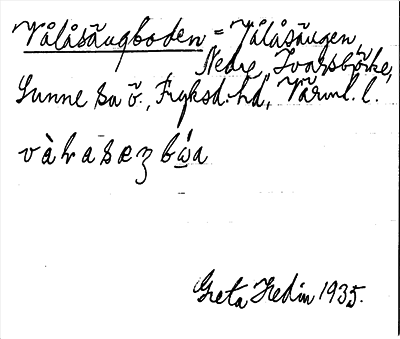 Vålåsäugboden = Vålåsäugen,
Nedre, Ivarsbörke,
Sunne sn ö., Fryksd. hd, Värml. l.
Greta Hedin 1935.